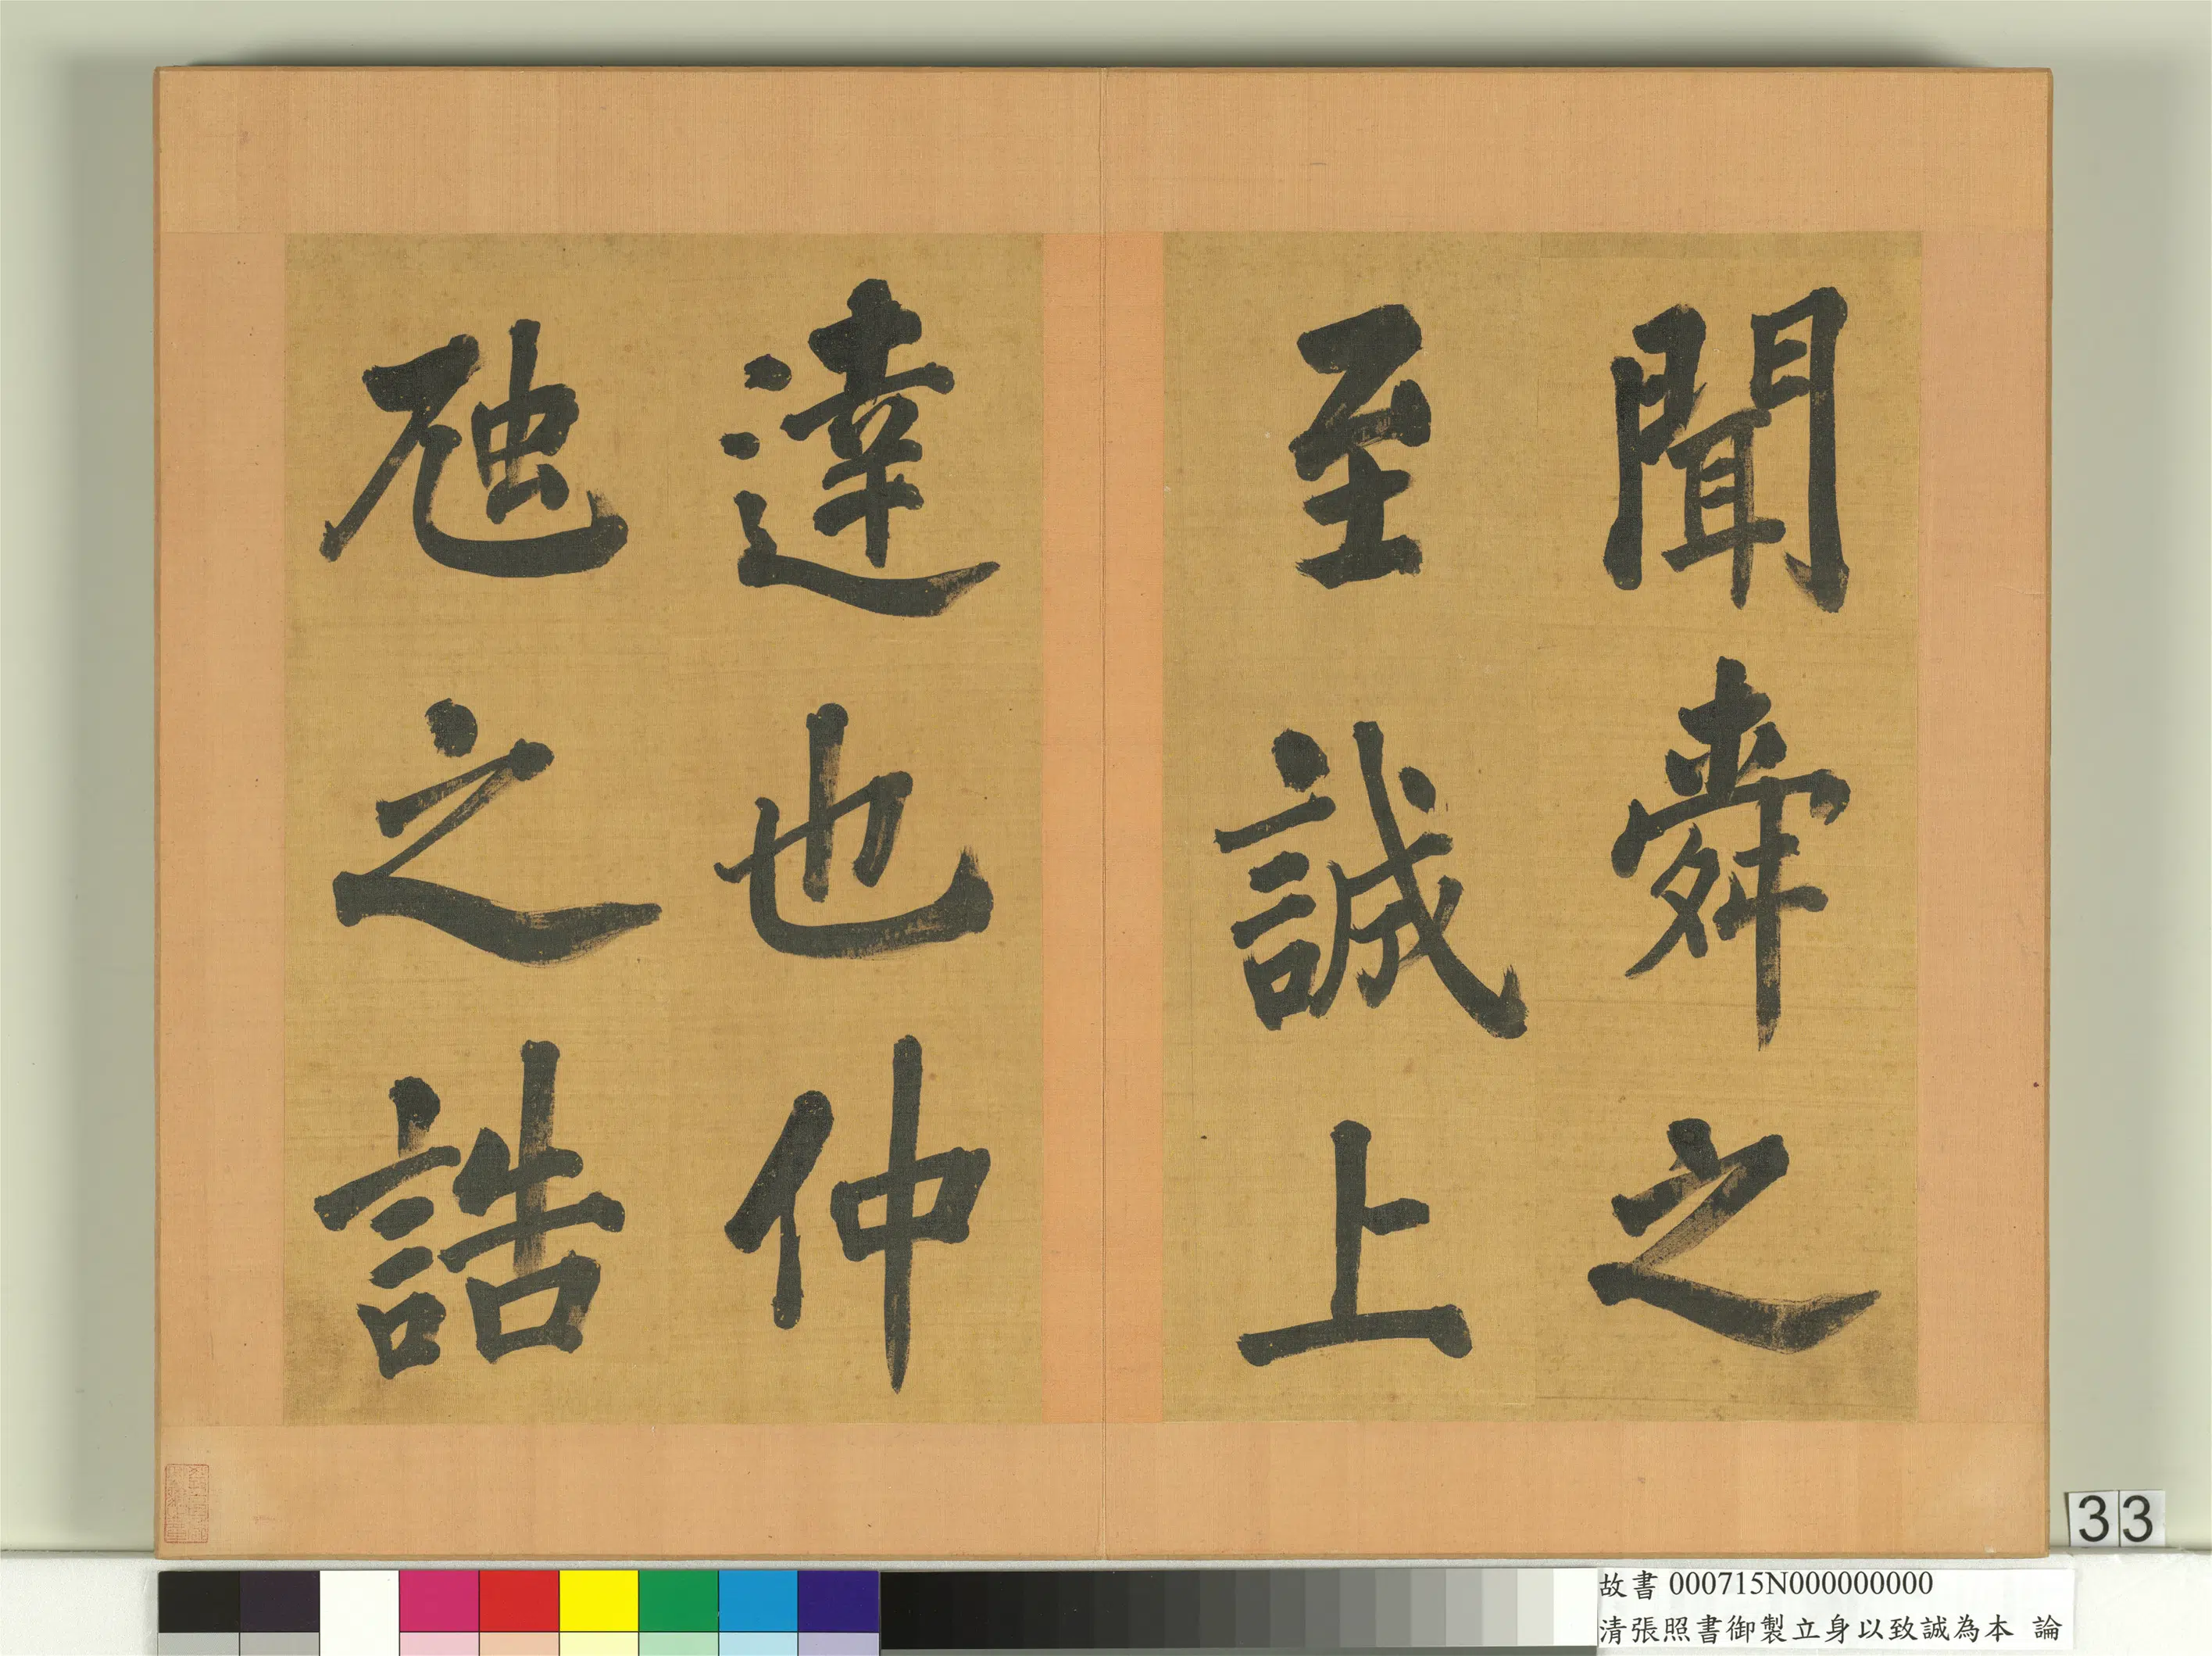 聞舜之
至誠上
達也仲
虺之誥
33
故書 000715N000000000
清張照書御製立身以致誠為本 論